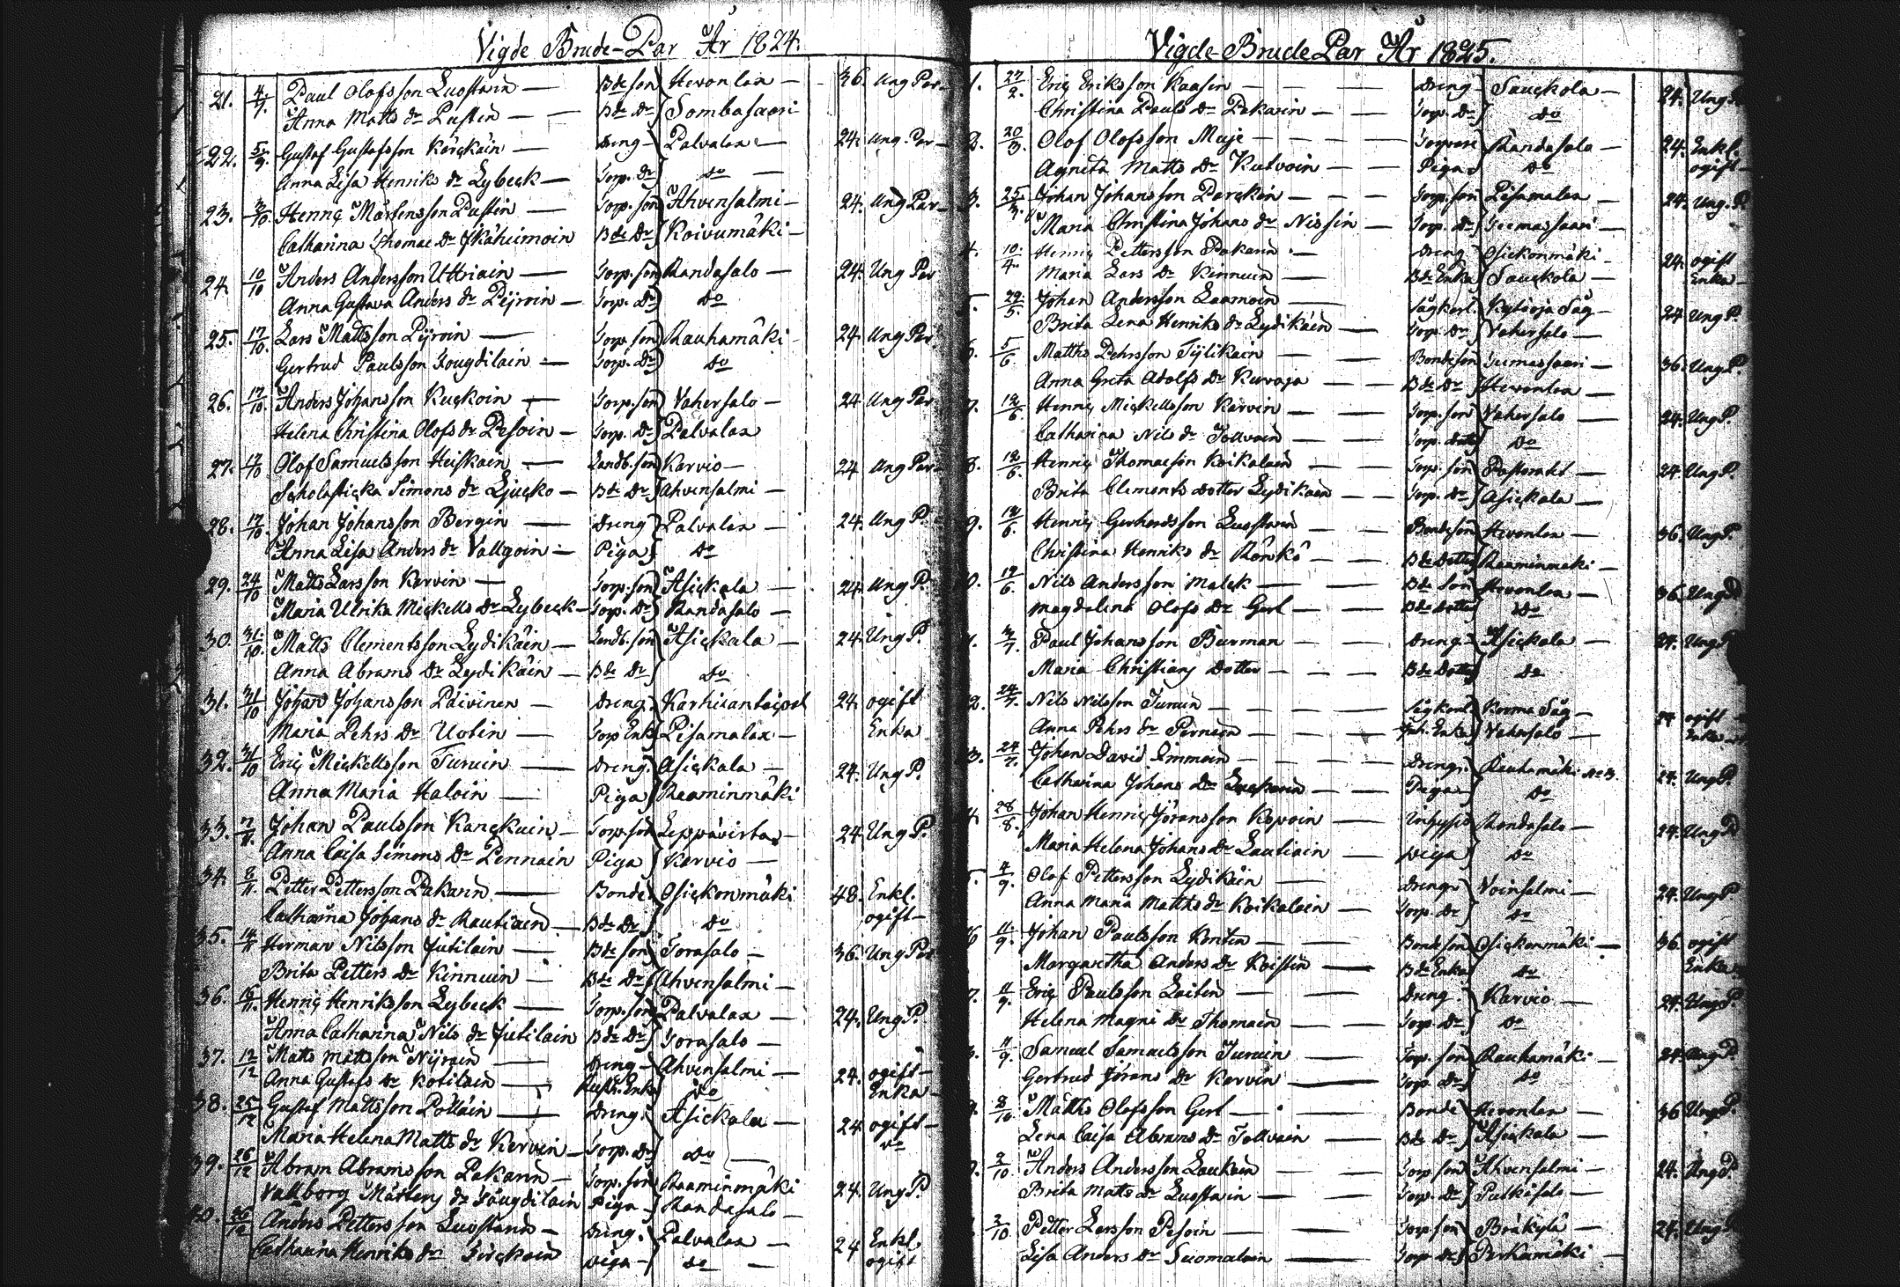 Vigde Brude-Par År 1824.
21. 4/7. Paul Olofsson Luostain Bde son Hevonlax 36 Ung Par
Anna Matts Dr Pustin Bde Dr Sombasaari
22. 5/9 Gustaf Gustafsson Käyckäin Dreng Palvalax 24. Ung Par
Anna Lisa Henriks Dr Lybeck Torp. Dr Do
23. 3/10 Henric Mårtensson Pustin Torp. son Ahvensalmi 24. Ung Par
Catharina Thomae Dr Ikäheimoin Bde Dr Koivumäki
24. 10/10 Anders Andersson Uttriain Torp. son Randasalo 24. Ung Par
Anna Gustava Anders Dr Pyroin Torp. Dr Do
25. 17/10. Lars Mattsson Pyroin Torp. son Rauhamäki 24. Ung Par
Gertrud Paulsson Tougdilain Torp. Dr Do
26. 17/10. Anders Johansson Keickoin Torp. son Vahersalo 24 Ung Par
Helena Christina Olofs Dr Pesoin Torp. Dr Palvalax
27. 17/10 Olof Samuelsson Heiskain Landb. son Karvio 24 Ung Par
Scholasticka Simons Dr Ljucko Bde Dr Ahvensalmi
28. 17/10 Johan Johansson Bergin Dreng Palvalax 24. Ung P.
Anna Lisa Anders Dr Vallgoin Piga Do
29. 24/10 Matts Larsson Kervin Torp. son Asickala 24 Ung P.
Maria Ulrika Mickells Dr Lybeck Torp. Dr Randasalo
30. 31/10. Matts Clementsson Lydikäin Landb. son Asickala 24. Ung P.
Anna Abrams Dr Lydikäin Bde Dr Do
31. 31/10 Johan Johansson Päivinen Dreng Karhisantaipal 24. ogift
Maria Pehrs Dr Uotin Torp Enk Pisamalax Enka
32. 31/10 Eric Mickellsson Turuin Dreng Asickala 24. Ung P.
Anna Maria Haloin Piga Raaminmäki
33. 7/11. Johan Paulsson Kanckuin Torp. son Leppävirta 24. Ung P.
Anna Caisa Simons Dr Pennain Piga Karvio
34. 8/11. Petter Pettersson Pakarin Bonde Osickonmäki 48. Enkl.
Catharina Johans Dr Rautiain Bde Dr Do ogift
35. 14/11 Herman Nilsson Jutilain Bde son Torasalo 36. Ung Par
Brita Petters Dr Kinnuin Bde Dr Ahvensalmi
36. 16/11. Henric Henriksson Lybeck Torp. son Palvalax 24. Ung P.
Anna Catharina Nils Dr Jutilain Bde Dr Torasalo
37. 12/12 Matts Mattsson Nyroin Dreng Ahvensalmi 24. ogift
Anna Gustafs Dr Kotilain Enka Do Enka
38. 25/12 Gustaf Mattsson Pölläin Dreng Asickala 24 ogift
Maria Helena Matts Dr Kervin Torp. Dr Do Do
39. 26/12 Abram Abramsson Pakarin Torp. son Raaminmäki 24. Ung P.
Vallborg Mårtens Dr Tougdilain Piga Randasalo
40. 26/12 Anders Pettersson Luostain Dreng Palvalax 24 Enkl.
Catharina Henriks Dr Piga Do ogift
Vigde Brude Par År 1825.
1. 27/2. Eric Eriksson Kaasin Dreng Sauckola 24. Ung P.
Christina Pauls Dr Pakarin Torp. Dr Do
2. 20/3. Olof Olofsson Muje Torpare Randasalo 24. Enkl.
Agneta Matts Dr Kutvoin Piga Do ogift
3. 25/3. Johan Johansson Parckin Torp. son Pisamalax 24. Ung. P.
Maria Christina Johans Dr Nissin Torp. Dr
4. 10/4. Henric Pettersson Pakarin Dreng Osickonmäki 24. ogift
Maria Lars Dr Kinnuin Bde Enka Sauckola Enka
5. 29/5. Johan Andersson Laamoin Sågkarl. Såg 24 Ung P.
Brita Lena Henriks Dr Lydikäin Torp. Dr Vahersalo
6. 5/6 Matths Pehrsson Tylikäin Bondeson 36. Ung P.
Anna Greta Adolfs Dr Kurvaja Bde Dr Hevonlax
7. 12/6. Henric Mickellsson Kervin Torp. son Vahersalo 24. Ung P.
Catharina Nils Dr Tollvain Torp. Dotter Do
8. 12/6. Henric Thomasson Koikalain Torp. son Pastorat 24. Ung P.
Brita Clements Dotter Lydikäin Torp. Dr Asickala
9. 12/6. Henric Gerhardsson Luostain Bondeson Hevonlax 36. Ung P.
Christina Henriks Dr Rönkö Bde Dotter Raaminmäki
10. 19/6. Nils Andersson Malck Bde Son Hevonlax 36. Ung P
Magdalena Olofs Dr Gerl Bde Dotter Do
11. 3/7. Paul Johansson Burman Dreng Asickala 24. Ung P
Maria Christians Dotter Bde Dotter Do
12. 24/7. Nils Nilsson Turuin Sågkarl Korma Såg 24 ogift
Anna Pehrs Dr Pirnein Enka Vahersalo Enka
13. 24/7. Johan David Immoin Dreng. Rauhamäki No 3. 24. Ung P.
Catharina Johans Dr Piga Do
14. 28/8. Johan Henric Göransson Kopoin Inhyses Randasalo 24. Ung P
Maria Helena Johans Dr Lautiain Piga Do
15. 4/9. Olof Pettersson Lydikäin Dreng Voinsalmi 24. Ung P
Anna Maria Matths Dr Koikalain Torp. Dr Do
16. 11/9. Johan Paulsson Kontin Bondeson Osickonmäki 36. ogift
Margaretha Anders Dr Koistin Bde Enka Do Enka
17. 11/9. Eric Paulsson Laitin Dreng. Karvio 24. Ung P.
Helena Magni Dr Thomain Torp. Dr Do
18. 11/9. Samuel Samuelsson Turuin Torp. son Rauhamäki 24 Ung P
Gertrud Görans Dr Kervin Torp. Dr Do
19. 8/10. Matths Olofsson Gerl Bonde Hevonlax 36 Ung P.
Lena Caisa Abrams Dr Tollvain Bde Dr Asickala
20. 2/10. Anders Andersson Laukain Torp. son Ahvensalmi 24. Ung P.
Brita Matts Dr Luostain Torp. Dr Putkisalo
2/10 Petter Larsson Pesoin Torp son Bräkylä 24. Ung
Lisa Anders Dr Suomalain Torp Dr Perkamäki